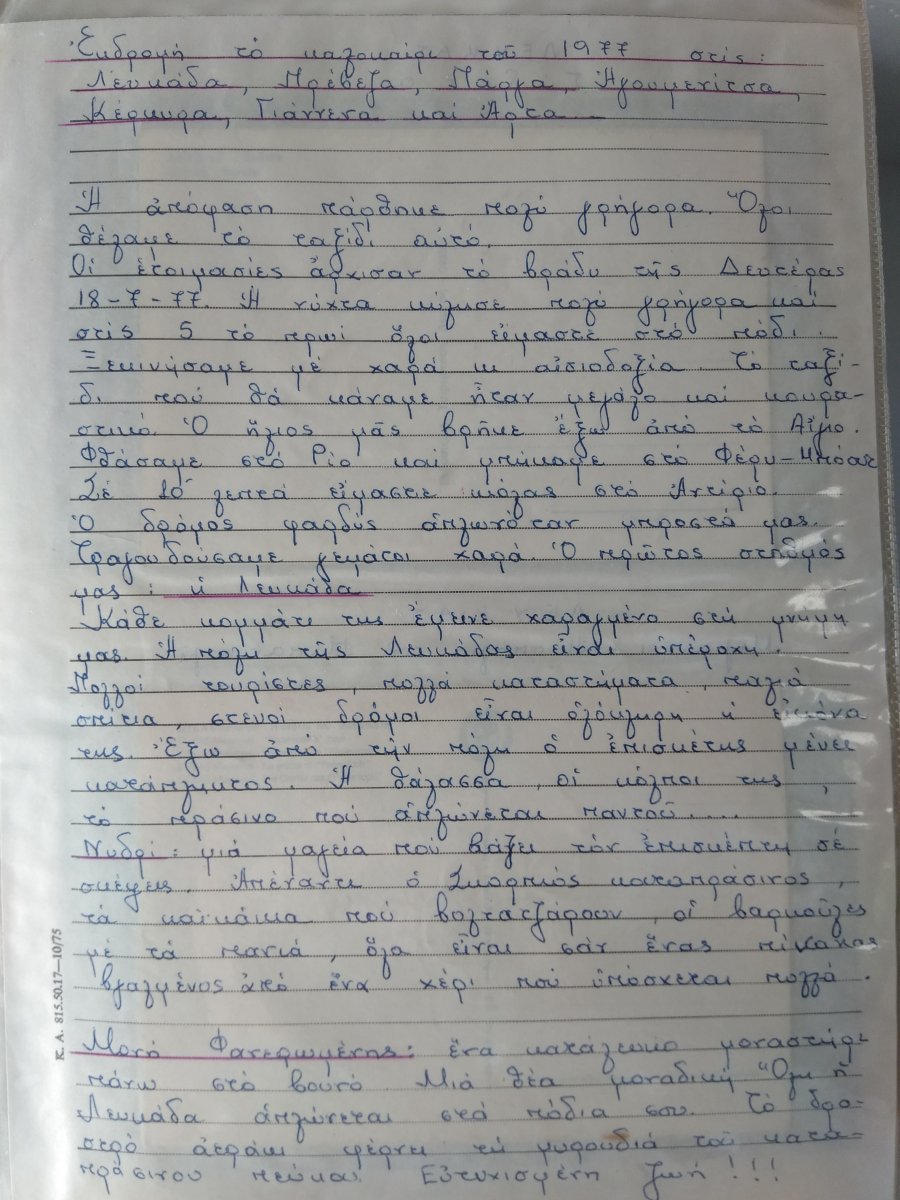 Ἐκδρομή τό καλοκαίρι τοῦ 1977 στίς:
Λευκάδα, Πρέβεζα, Πάργα, Ἡγουμενίτσα,
Κέρκυρα, Γιάννενα καί Ἄρτα.
Ἡ ἀπόφαση πάρθηκε πολύ γρήγορα. Ὅλοι
θέλαμε τό ταξίδι αὐτό.
Οἱ ἑτοιμασίες ἄρχισαν τό βράδυ τῆς Δευτέρας
18-7-77. Ἡ νύχτα κύλησε πολύ γρήγορα καί
στίς 5 τό πρωί ὅλοι εἴμαστε στό πόδι.
Ξεκινήσαμε μέ χαρά κι αἰσιοδοξία. Τό ταξί-
δι πού θά κάναμε ἦταν μεγάλο καί κουρα-
στικό. Ὁ ἥλιος μᾶς βρῆκε ἔξω ἀπό τό Αἴγιο.
Φθάσαμε στό Ρίο καί μπήκαμε στό Φέρυ-Μπόατ
Σέ 10΄ λεπτά εἴμαστε κιόλας στό Ἀντίριο.
Ὁ δρόμος φαρδύς ἁπλωνόταν μπροστά μας.
Τραγουδούσαμε γεμάτοι χαρά. Ὁ πρῶτος σταθμός
μας: ἡ Λευκάδα
Κάθε κομμάτι της ἔμεινε χαραγμένο στή μνήμη
μας. Ἡ πόλη τῆς Λευκάδας εἶναι ὑπέροχη.
Πολλοί τουρίστες, πολλά καταστήματα, παλιά
σπίτια, στενοί δρόμοι εἶναι ὁλόκληρη ἡ εἰκόνα
της. Ἔξω ἀπό τήν πόλη ὁ ἐπισκέπτης μένει
κατάπληκτος. Ἡ θάλασσα, οἱ κόλποι της,
τό πράσινο πού ἁπλώνεται παντοῦ.....
Νυδρί: μιά μαγεία πού βάζει τόν ἐπισκέπτη σέ
σκέψεις. Ἀπέναντι ὁ Σκορπιός καταπράσινος,
τά καϊκάκια πού βολτατζάρουν, οἱ βαρκοῦλες
μέ τά πανιά, ὅλα εἶναι σάν ἕνας πίνακας
βγαλμένος ἀπό ἕνα χέρι πού ὑπόσχεται πολλά.
Μονή Φανερωμένης: ἕνα κατάλευκο μοναστήρι
πάνω στό βουνό. Μιά θέα μοναδική. Ὅλη ἡ
Λευκάδα ἁπλώνεται στά πόδια σου. Τό δρο-
σερό ἀεράκι φέρνει τή μυρουδιά τοῦ κατα-
πράσινου πεύκου. Εὐτυχισμένη ζωή!!!
Κ. Α. 815.50.17—10/75